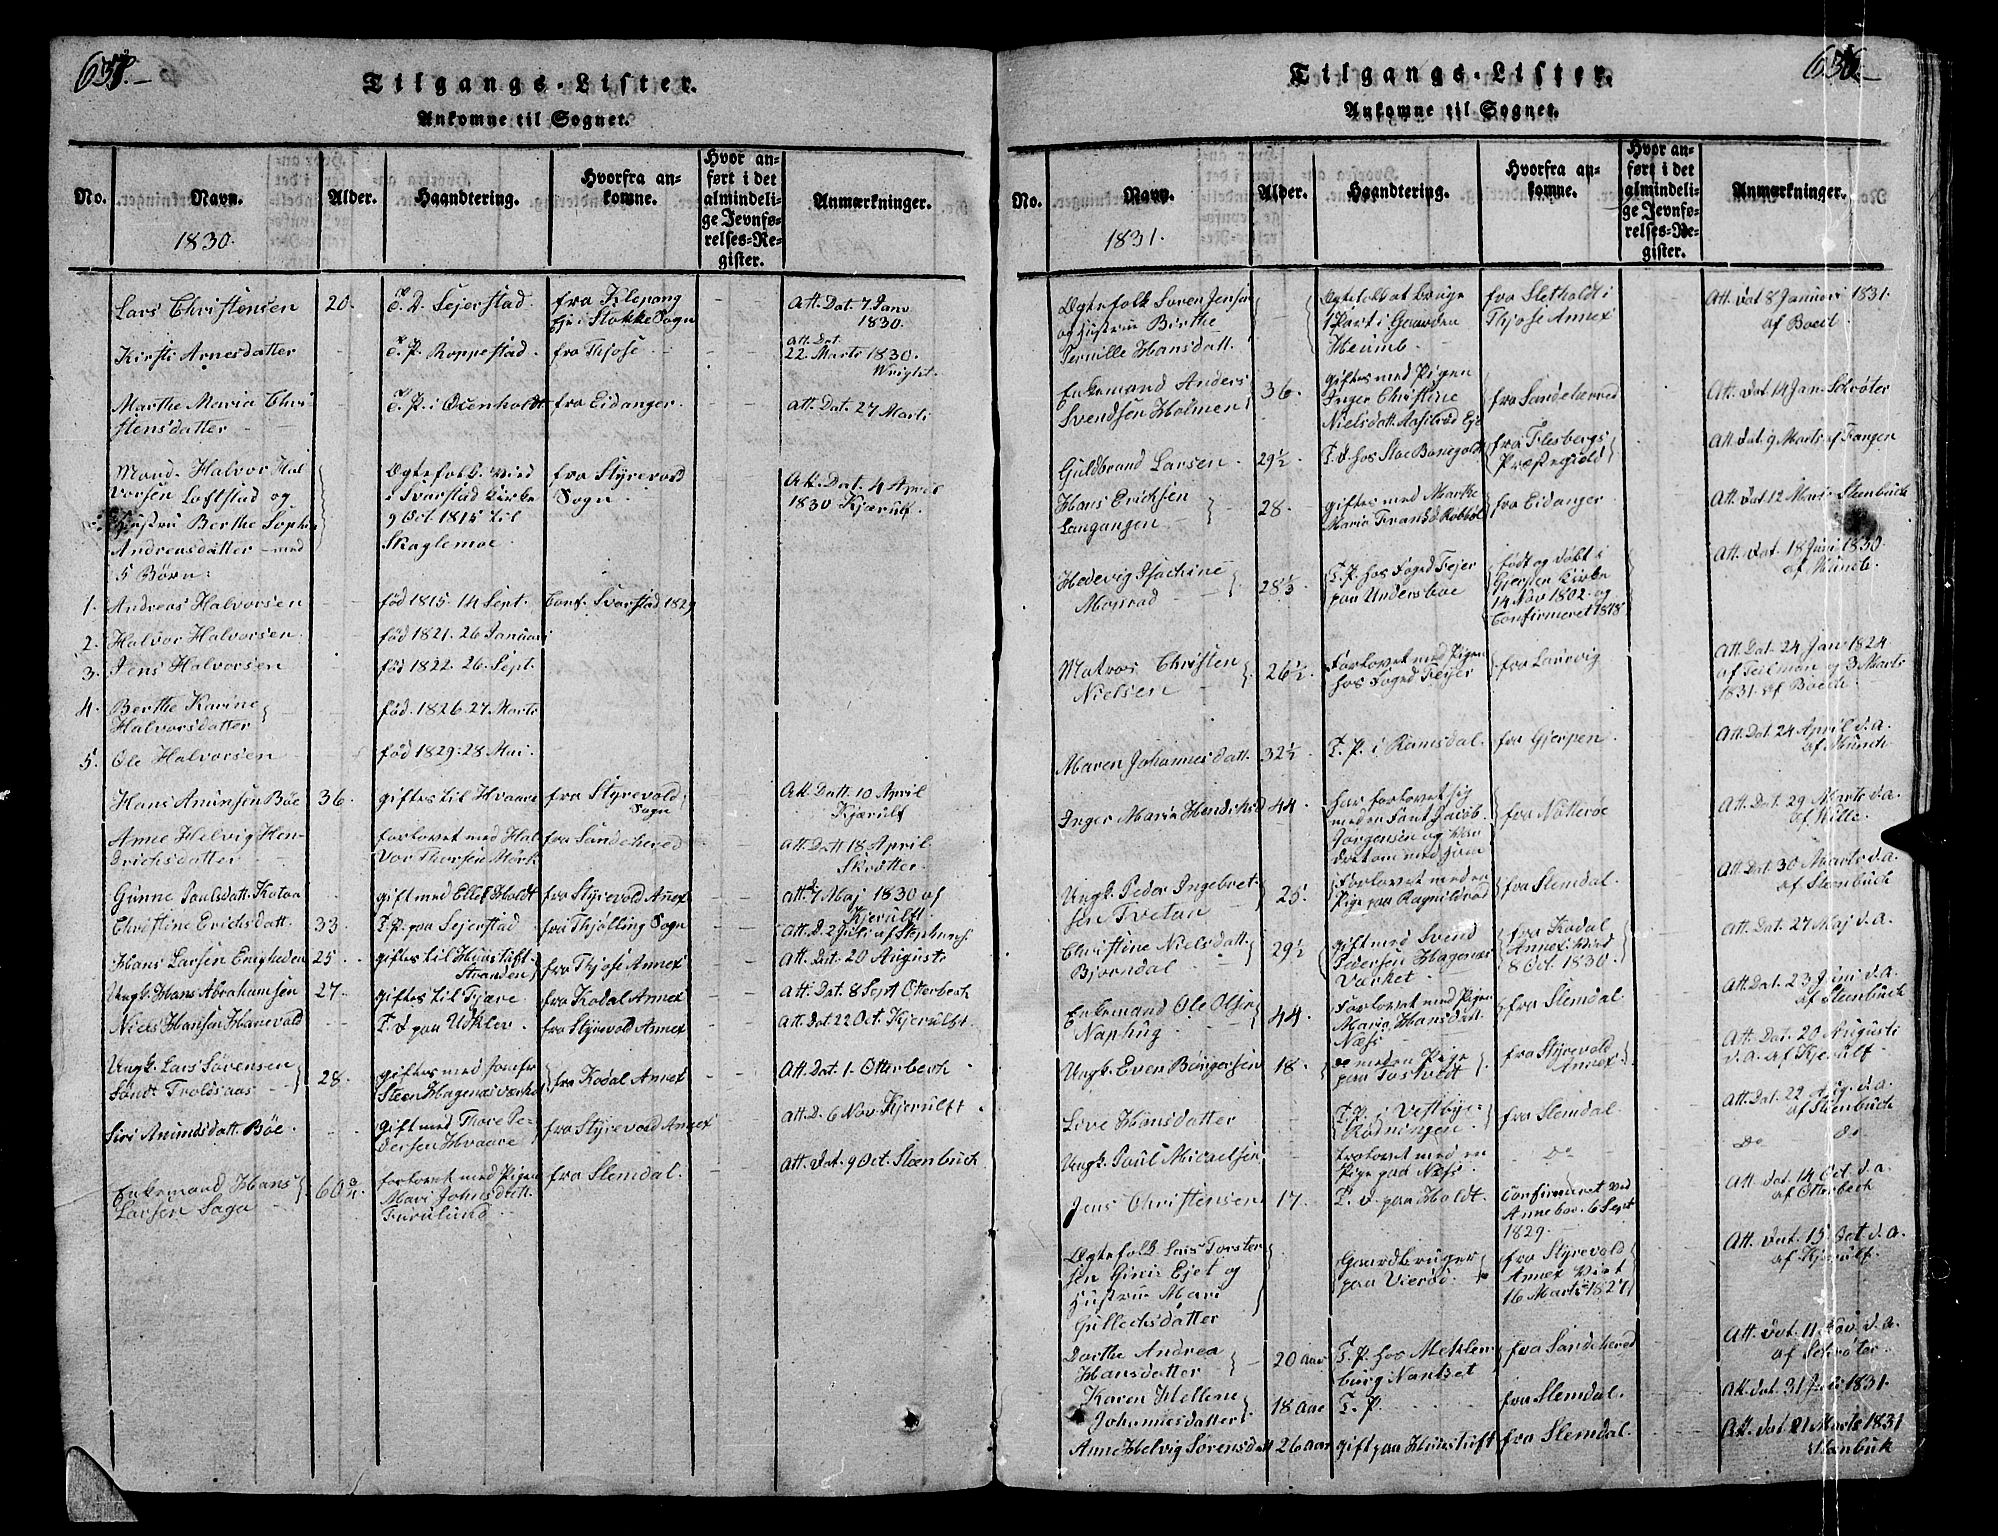 Tilgangs-Lister.
Ankomne til Sognet.
No. Navn. Alder. Haandtering. Hvorfra ankomne. Hvor anført i det almindelige Jevnførelses-Register. Anmærkninger.
1830.
Lars Christensen 20. T. D. Sejerstad. fra Klepang Eje i Stokke Sogn Att. Dat. 7 Janv 1830.
Kirsti Arnesdatter T. P. Roppestad. fra Thjose Att. Dat. 22 Marts 1830. Wright.
Marthe Maria Christensdatter T. P. i Odenholdt fra Eidanger. Att. Dat. 27 Marti
Mand. Halvor Halvorsen Loftstad og Hustru Berthe Sophie Andreasdatter med 5 Børn: Ægtefolk. Vied i Svarstad Kirke 9 Oct. 1815 til Skaglemoe fra Styrevold Sogn Att. Dat. 4 April 1830 Kjærulf.
1. Andreas Halvorsen fød 1815. 14 Sept. Conf. Svarstad 1829
2. Halvor Halvorsen fød 1821. 26 Januari
3. Jens Halvorsen fød 1822. 26. Sept.
4. Berthe Karine Halvorsdatter fød. 1826. 27. Marts
5. Ole Halvorsen fød 1829: 28 Mai.
Hans Amundsen Bøe 36. giftes til Hvaare fra Styrevold Sogn Att. Datt. 10 April Kjærulf
Anne Helvig Hendrichsdatter forlovet med Halvor Thorsen Mørk fra Sandeherred Att. Datt 18 April Skrøtter.
Gunne Paulsdatt. gift med Ellef Holdt fra Styrevold Anex Att. 7 Maj 1830 af Kjerulf.
Christine Erichsdatt. 33. T. P. paa Sejerstad fra Thjølling Sogn Att. D. 2 Juli af Stephens.
Hans Larsen Enigheden 25. giftes til Hunstuft Stranden fra Thjose Annex Att. Dat. 20 Augusti
Ungk. Hans Abrahamsen 27. giftes til Fjære. fra Kodal Annex Att. Dat 8 Sept Otterbech
Niels Hansen Hanevold T. d paa Uhler. fra Styrevold Annex Att. Dat 22 Oct. Kjerulf.
Ungk. Lars Sörensen Sønd. Trolsaas 28. giftes med Jomfr Steen Hagenæs værket fra Kodal Annex Att. Dat. 1. Otterbech
Siri Amundsdatt. Bøe. gift med Thore Pedersen Hvaare fra Styrevold Annex Att. D. 6 Nov. Kjerulf.
Enkemand Hans Larsen Saga 60 forlovet med Pigen Mari Johnsdatt. Furulund. fra Slemdal. Att. Dat. 9 Oct. Stenbuch
Tilgangs-Lister.
Ankomne til Sognet.
No. Navn. Alder. Haandtering. Hvorfra ankomne. Hvor anført i det almindelige Jevnførelses-Register. Anmærkninger.
1831.
Ægtefolk Soren Jensen og Hustru Birthe Pernille Hansdatt. Ægtefolk at bruge 1 Part i Gaarden Heumb. fra Sletholdt i Thjose Annex Att. Dat 8 Januari 1831. af Boed.
Enkemand Anders Svendsen Holmen 36. giftes med Pigen Inger Christine Nielsdatt. Eje fra Sandeherred Att. Dat 14 Jan. Schrøter
Guldbrand Larsen 29½ T. d. hos fra Flesbergs Præstegield Att. Dat. 9. Marts af Fangen
Hans Ericksen Langangen 28. giftes med Marthe Maria fra Eidanger Att. Dat 12 Mai. Steenbuch
Hedevig Monrad 28½ T. P. hos Foged Fejer paa Undersboe født og døbt i Gjerpen Kirke 14 Nov 1802. og Confirmeret 1818. Att. Dat. 18 Juni 1830 af Munch.
Matros Christen Nielsen 26½ Forlovet med Pigen hos Foged Fejer fra Laurvig Att. Dat. 24 Jan 1824 af Teilman og 3 Marts 1831. af Boeck.
Maren Johannesdatt. 32½ T. P. i Ramsdal. fra Gjerpen. Att. Dat. 24 April d. a. af Munch
Inger Maria Hendriksd 44. har forlovet sig med Jacob Jørgensen og fra Nøtteröe Att. Dat. 29 Marts d. a. af Wille.
Ungk. Peder Ingebretsen Tvetan 25. Forlovet med en Pige paa Ragnildrød fra Slemdal. Att. Dat. 30 Marts d. a. af Steenbuch
Christine Nielsdatt. Bjørndal 29½ gift med Svend Pedersen Hagenæs Værket fra Kodal Annex Viede 8 Oct. 1830. Att. Dat. 27 Maj d. a.
Enkemand Ole Olsen Naphug 44. Forlovet med Pigen Maria Hansdatt. Næss fra Slemdal Att. Dat. 23 Juni d. a. af Steenbuch
Ungk. Even Börgersen 18. do med en Pige paa Tostvedt fra Styrevold Annex Att. Dat. 20 Augusti d. a. af Kjerulf
Live Hansdatter T. P. i Vestbye Rødningen. fra Slemdal Att. Dat. 22 Aug. d. a. af Steenbuch
Ungk. Paul Micaelsen Forlovet med en Pige paa Næss. do do do
Jens Christensen 17. T. d paa Holdt. Confirmeret ved Annebov. 6 Sept 1829. Att. Dat. 14 Oct. d. a. af Otterbech
Ægtefolk Lars Torstensen Ejet og Hustru Mari Gullechsdatter Gaardbruger paa Vierød. fra Styrevold Annex Viet 16 Marts 1827 Att. Dat. 15 Oct. d. a. af Kjerulf.
Dorthe Andrea Hansdatter 20 aar T. P. hos Mehlenburg Nantset fra Sandeherred Att. Dat. 11 Nov. d. a. af Schrøter.
Karen Hellene Johannesdatter 18 Aar T. P. fra Slemdal. Att. Dat. 31 Juli 1831.
Anne Helvig Sörensdatt 26 aar gift paa Hunstuft fra Slemdal. Att. Dat 21 Marts 1831 Stenbuk